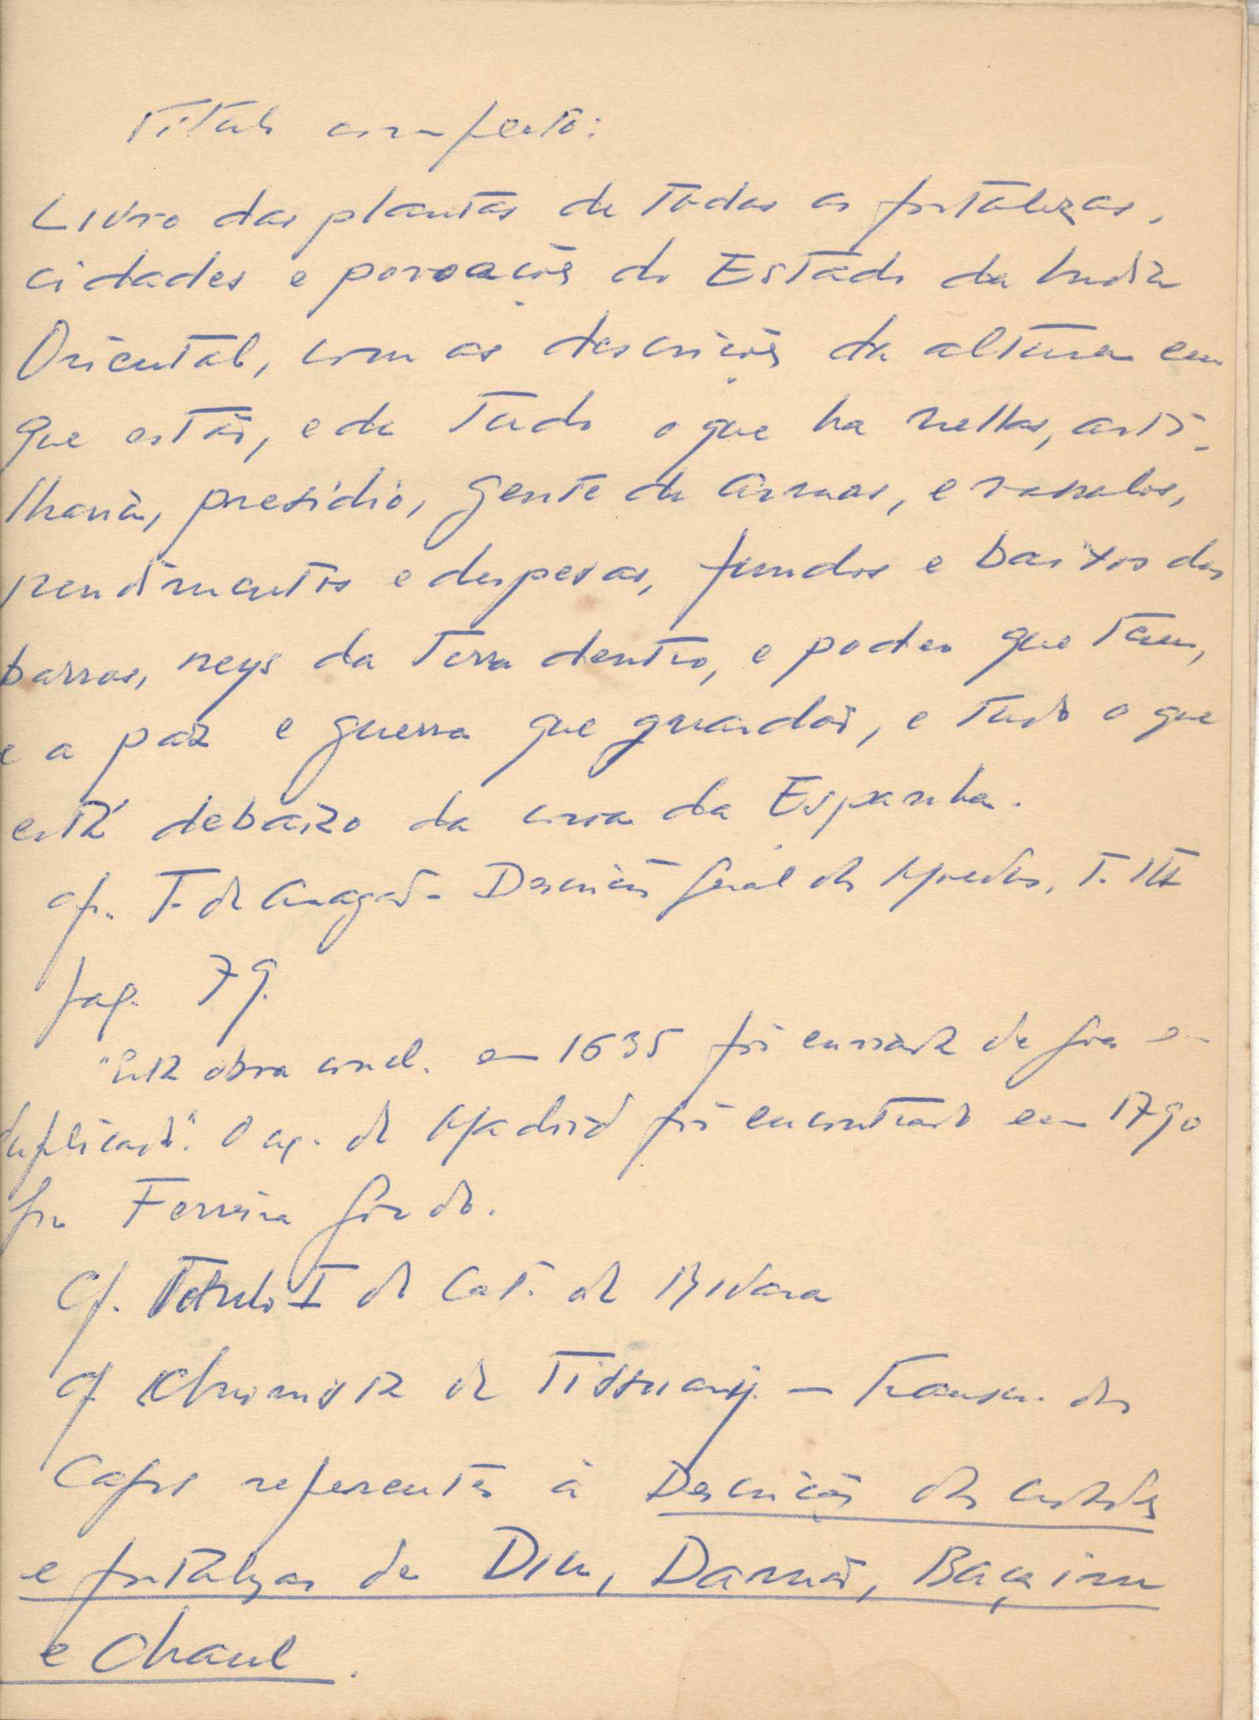 Titulo completo:
Livro das plantas de todas as fortalezas,
cidades e povoações do Estado da India
Oriental, com as descrições da altura em
que estão, e de tudo o que ha nellas, arti-
lharia, presidio, gente de armas, e vassalos,
rendimentos e despesas, fundos e baixos das
barras, reys da terra dentro, e poder que tem,
e a paz e guerra que guardão, e tudo o que
está debaixo da coroa da Espanha.
ap. T. de Aragão - Descrição Geral das Moedas, T. III
pag. 79.
"Esta obra concl. em 1635 foi enviada de Goa em
duplicado". O ex. de Madrid foi encontrado em 1790
por Ferreira Gordo.
Cf. Titulo I do Cat. de Rivara
Cf. Chronista de Tissuary - Transcr. dos
Caps referentes à Descrição das cidades
e fortalezas de Diu, Damão, Baçaim
e Chaul.